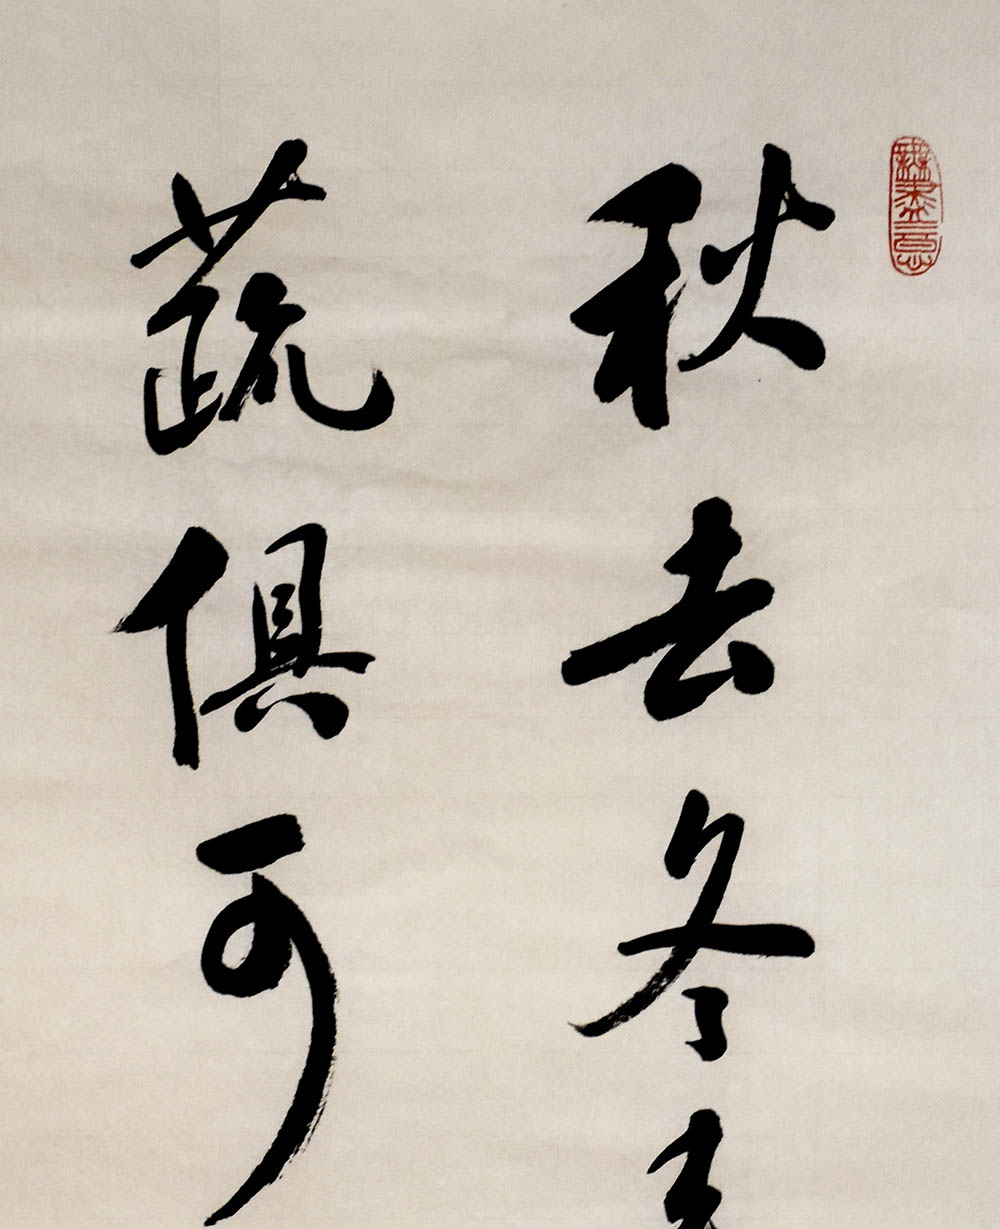 秋去冬
蔬俱可